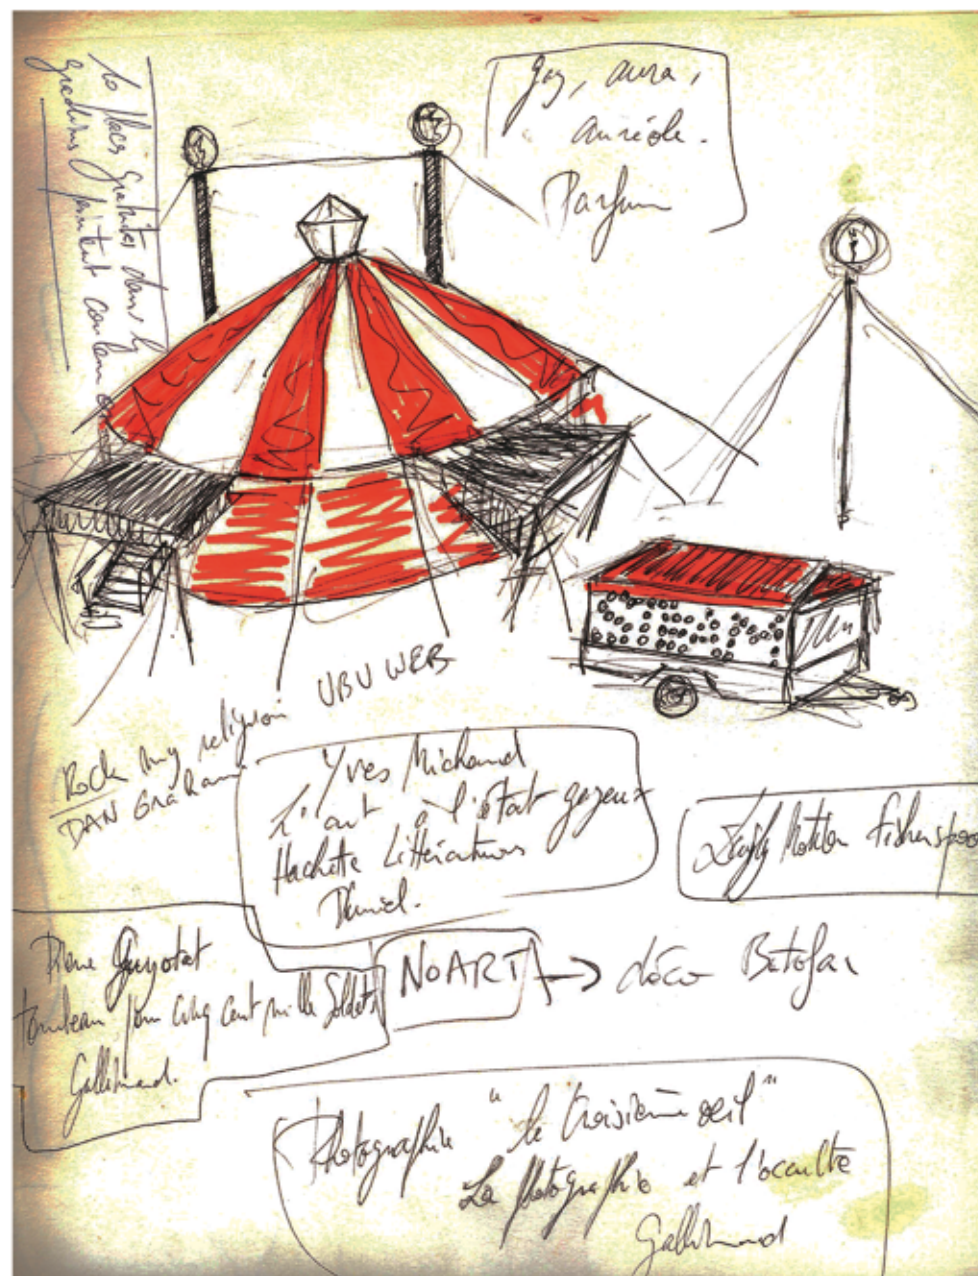 10 places gratuites dans les
gradins peintent couleur or
gaz, aura,
auréole.
Parfum
Rock my religion UBU WEB
DAN GRAHAM
Yves Michaud
L'art à l'état gazeux
Hachette Littératures
Pluriel.
Fisherspoo
Pierre Guyotat
tombeau pour cinq cent mille Soldats
Gallimard.
NOART → déco Batofar
Photographie "le troisième œil"
La photographie et l'occulte
Gallimard